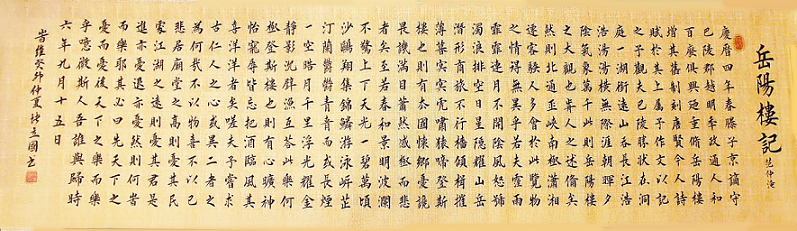 岳陽樓記 范仲淹
慶曆四年春滕子京謫守
巴陵郡越明年政通人和
百廢俱興迺重脩岳陽樓
增其舊制刻唐賢今人詩
賦於其上屬予作文以記
之予觀夫巴陵勝狀在洞
庭一湖銜遠山吞長江浩
浩湯湯橫無際涯朝暉夕
陰氣象萬千此則岳陽樓
之大觀也前人之述備矣
然則北通巫峽南極瀟湘
遷客騷人多會於此覽物
之情得無異乎若夫霪雨
霏霏連月不開陰風怒號
濁浪排空日星隱耀山岳
潛形商旅不行檣傾楫摧
薄暮冥冥虎嘯猿啼登斯
樓也則有去國懷鄉憂讒
畏譏滿目蕭然感極而悲
者矣至若春和景明波瀾
不驚上下天光一碧萬頃
沙鷗翔集錦鱗游泳岸芷
汀蘭鬱鬱青青而或長煙
一空皓月千里浮光耀金
靜影沈璧漁歌互答此樂何
極登斯樓也則有心曠神
怡寵辱皆忘把酒臨風其
喜洋洋者矣嗟夫予嘗求
古仁人之心或異二者之
為何哉不以物喜不以己
悲居廟堂之高則憂其民
處江湖之遠則憂其君是
進亦憂退亦憂然則何時
而樂耶其必曰先天下之
憂而憂後天下之樂而樂
乎噫微斯人吾誰與歸時
六年九月十五日
歲維癸卯仲夏張立國書